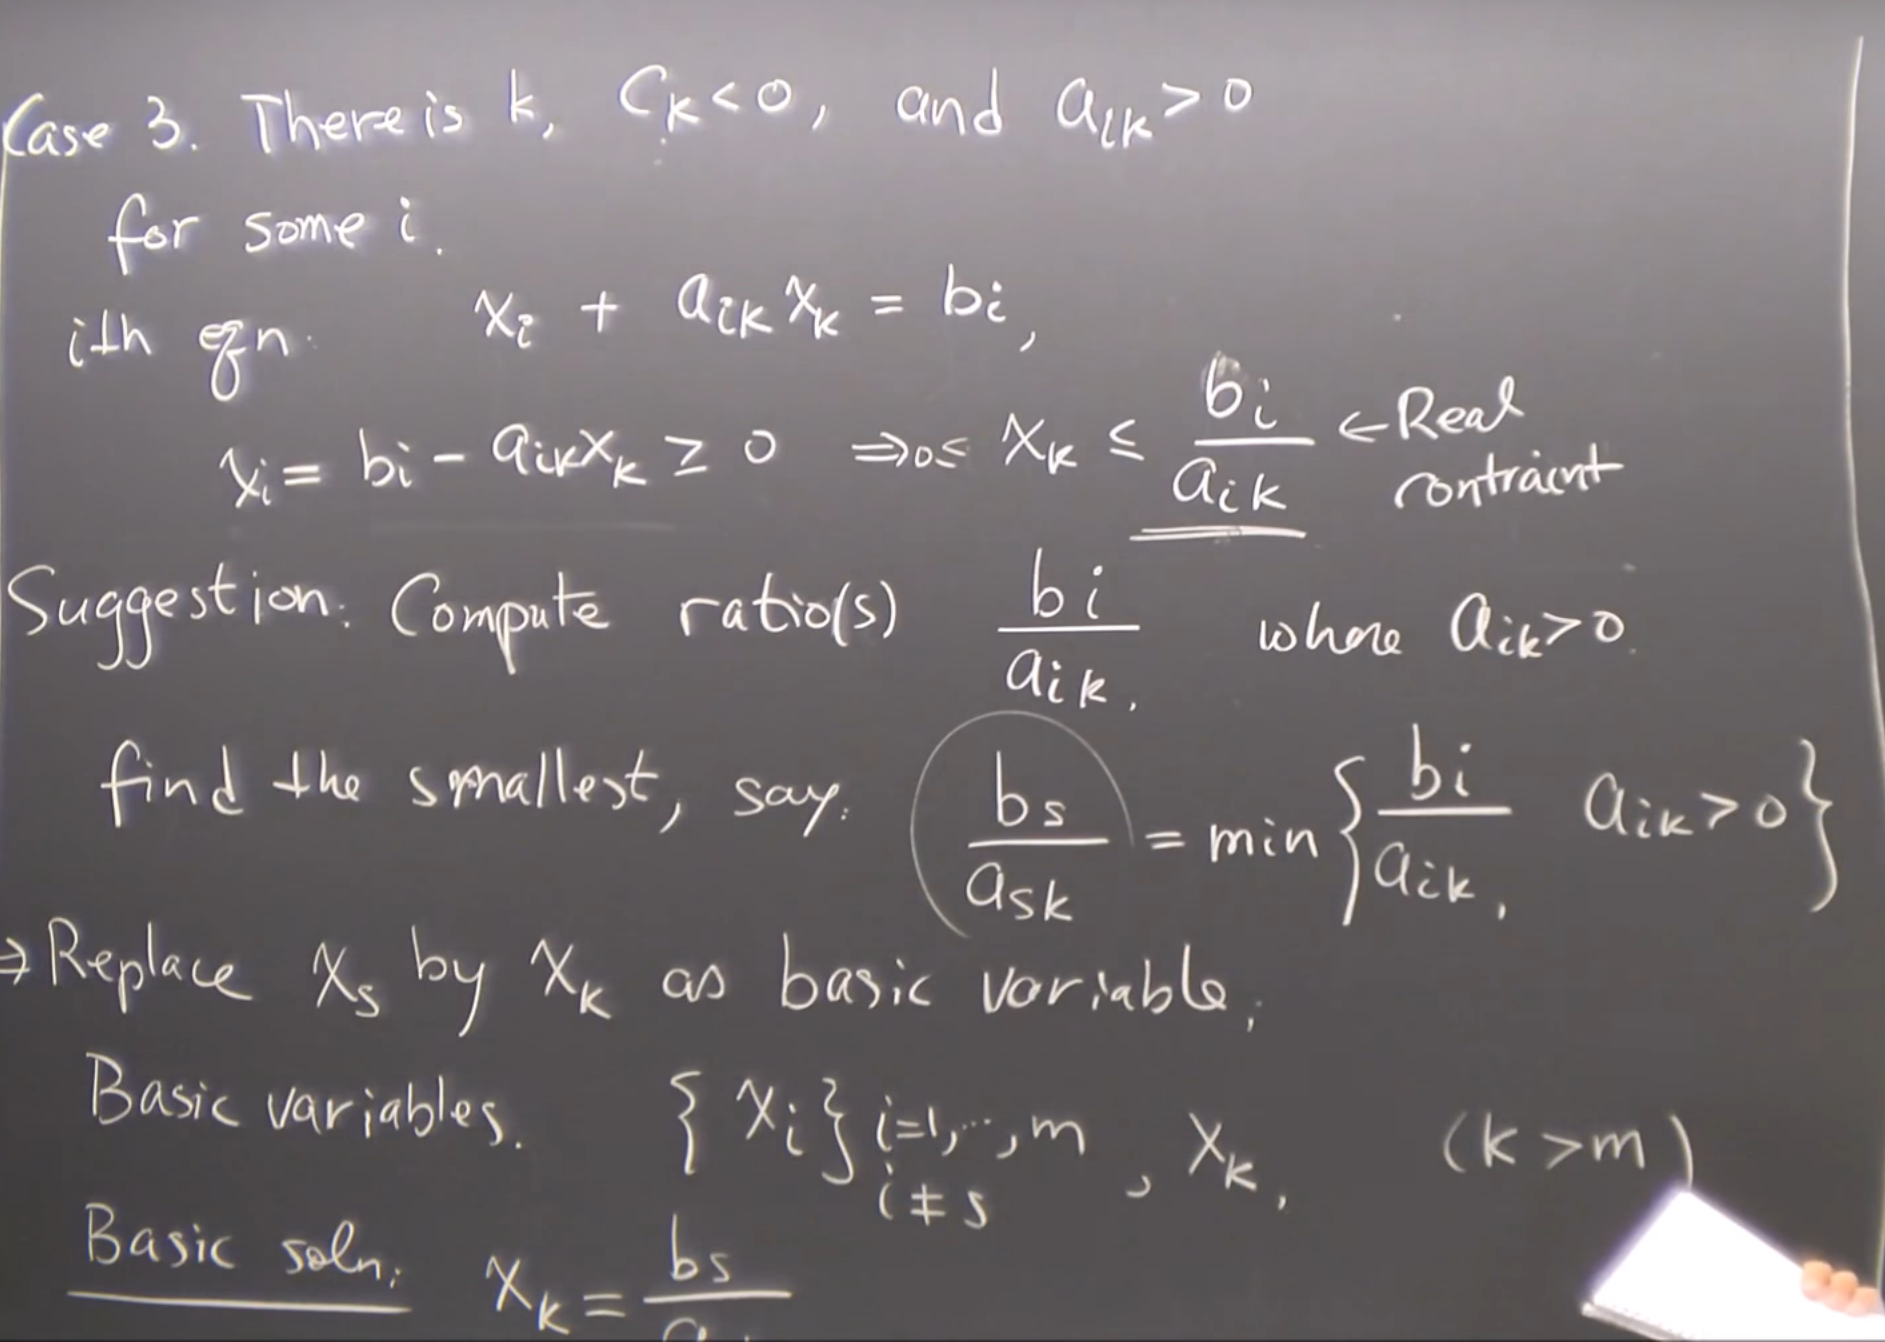 Case 3. There is k, Ck<0, and aik>0
for some i.
ith eqn. xi + aik xk = bi,
xi = bi - aik xk ≥ 0 ⇒ 0≤ xk ≤ bi/aik ← Real contraint
Suggestion: Compute ratio(s) bi/aik, where aik>0.
find the smallest, say: bs/ask = min{bi/aik, aik>0}
⇒ Replace xs by xk as basic variable,
Basic variables. {xi} i=1,...,m, i≠s, xk, (k>m)
Basic soln: xk = bs/